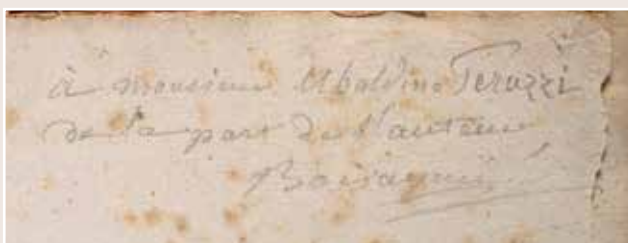 à monsieur Ubaldino Peruzzi
de la part de l'auteur